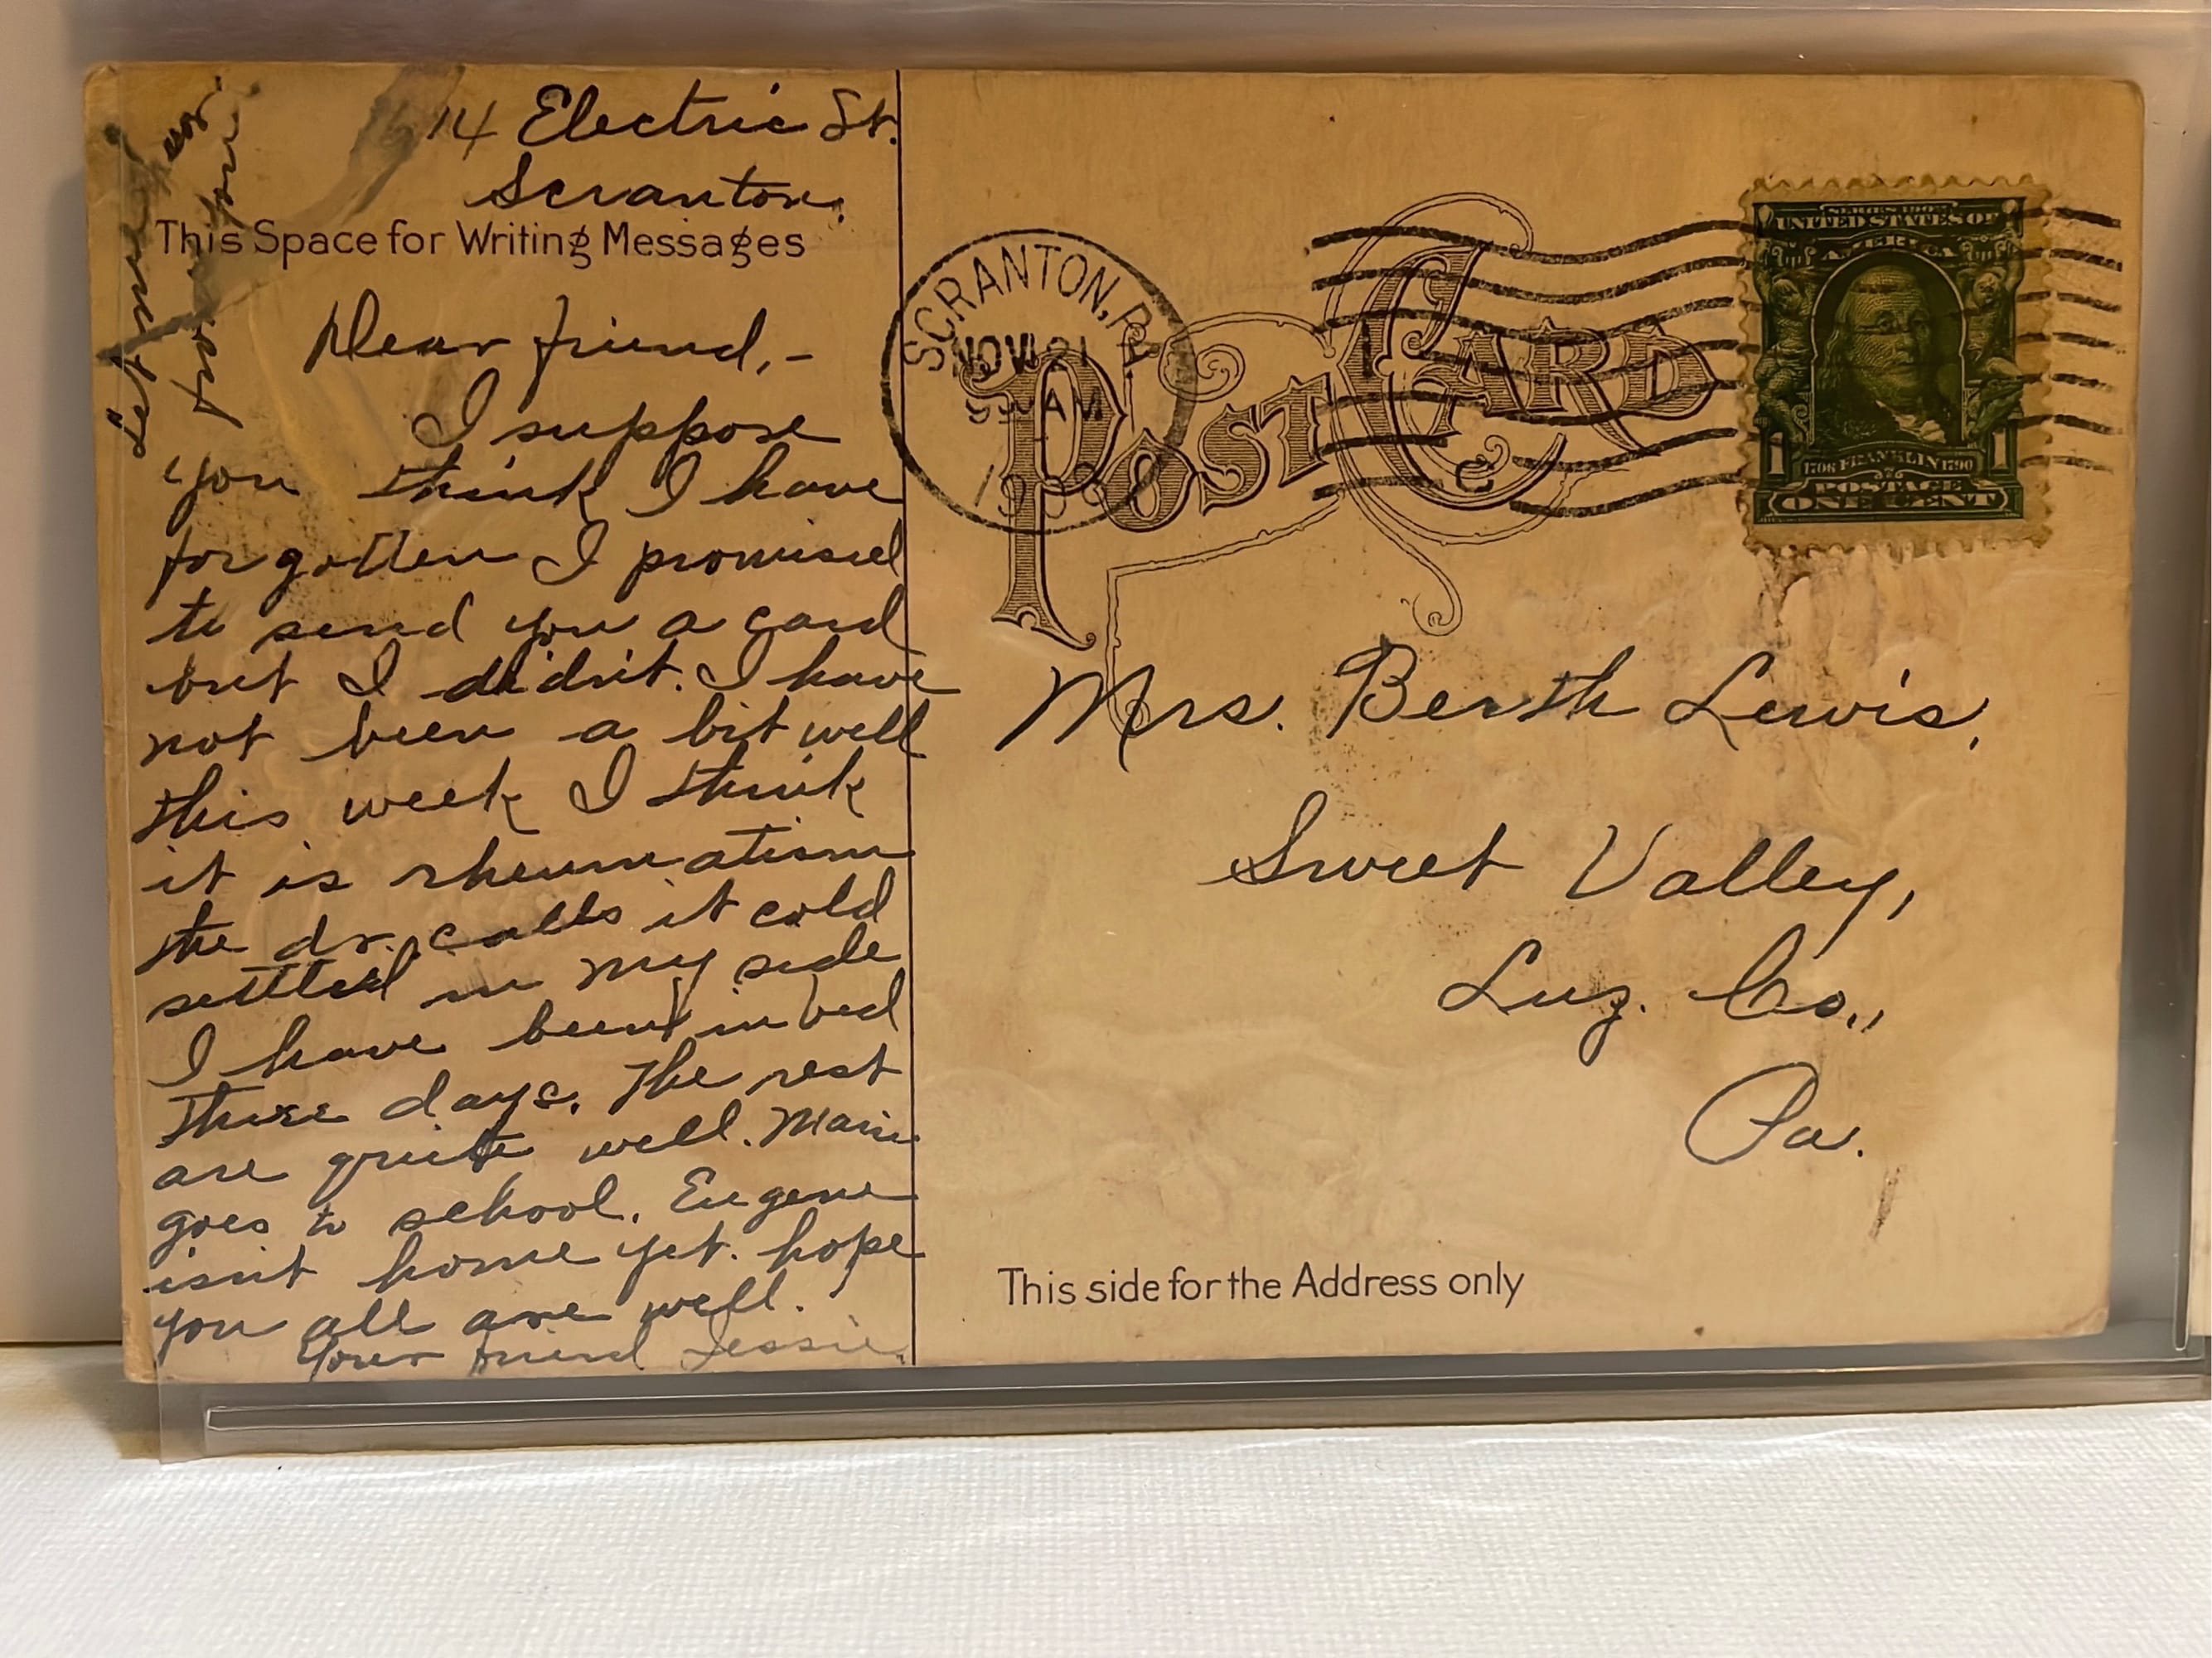 614 Electric St.
Scranton.
This Space for Writing Messages
Dear friend,-
I suppose
you think I have
forgotten I promised
to send you a card
but I didn't. I have
not been a bit well
this week I think
it is rheumatism
the dr. calls it cold
settled in my side
I have been in bed
three days. The rest
are quite well. Marie
goes to school. Eugene
isn't home yet. hope
you all are well.
Your friend Jessie.
Let me hear
from you.
SCRANTON, PA
NOV 21
AM
POST CARD
SERIES 1902
UNITED STATES OF
AMERICA
1706 FRANKLIN 1790
POSTAGE
1 ONE CENT 1
Mrs. Berth Lewis,
Sweet Valley,
Luz. Co.,
Pa.
This side for the Address only